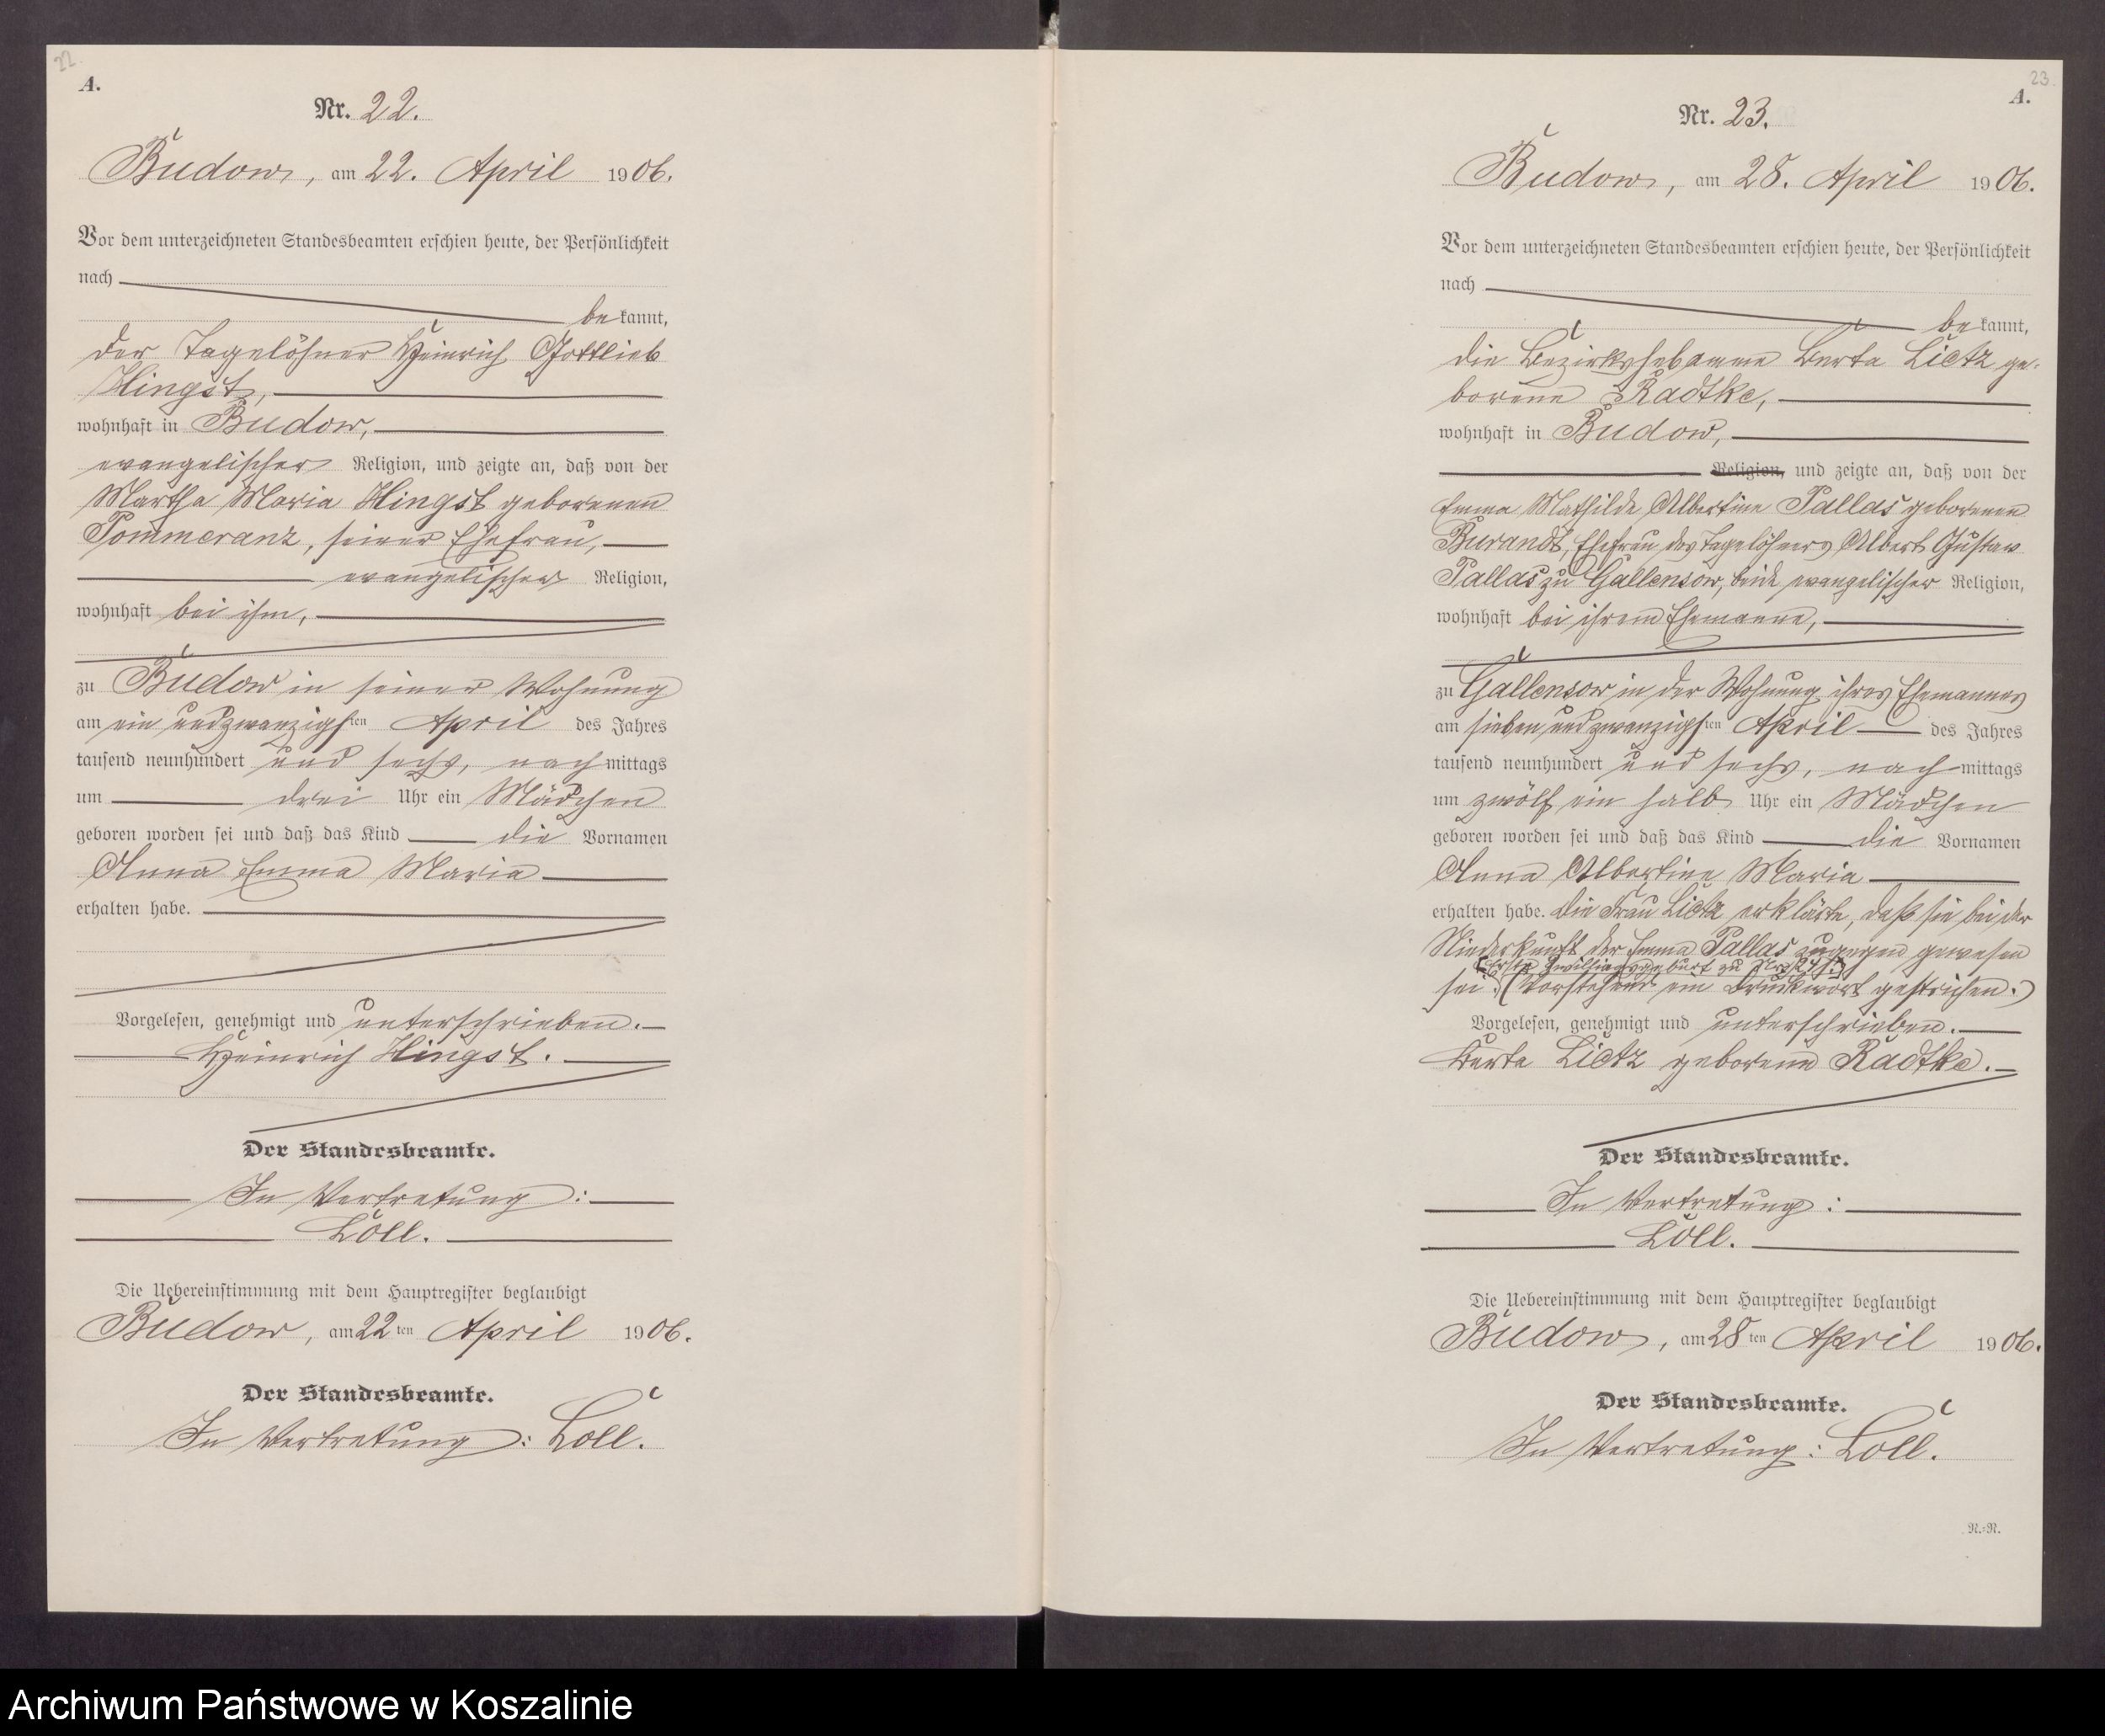 22
A.
Nr. 22.
Budow, am 22. April 1906.
Vor dem unterzeichneten Standesbeamten erschien heute, der Persönlichkeit
nach
bekannt,
der Tagelöhner Heinrich Gottlieb
Hingst,
wohnhaft in Budow,
evangelischer Religion, und zeigte an, daß von der
Martha Maria Hingst geborenen
Pommeranz, seiner Ehefrau,
evangelischer Religion,
wohnhaft bei ihm,
zu Budow in seiner Wohnung
am ein und zwanzigsten April des Jahres
tausend neunhundert und sechs, nachmittags
um drei Uhr ein Mädchen
geboren worden sei und daß das Kind die Vornamen
Anna Emma Maria
erhalten habe.
Vorgelesen, genehmigt und unterschrieben.
Heinrich Hingst.
Der Standesbeamte.
In Vertretung:
Loll.
Die Uebereinstimmung mit dem Hauptregister beglaubigt
Budow, am 22ten April 1906.
Der Standesbeamte.
In Vertretung: Loll.
23
A.
Nr. 23.
Budow, am 28. April 1906.
Vor dem unterzeichneten Standesbeamten erschien heute, der Persönlichkeit
nach
bekannt,
die Bezirkshebamme Berta Lietz ge-
borene Radtke,
wohnhaft in Budow,
Religion, und zeigte an, daß von der
Emma Mathilde Albertine Pallas geborenen
Burandt, Ehefrau des Tagelöhners Albert Gustav
Pallas zu Gallensow, beide evangelischer Religion,
wohnhaft bei ihrem Ehemanne,
zu Gallensow in der Wohnung ihres Ehemannes
am sieben und zwanzigsten April des Jahres
tausend neunhundert und sechs, nachmittags
um zwölf ein halb Uhr ein Mädchen
geboren worden sei und daß das Kind die Vornamen
Anna Albertine Maria
erhalten habe. Die Frau Lietz erklärte, daß sie bei der
Niederkunft der Emma Pallas zugegen gewesen
(Erste Zwillingsgeburt zu Nr. 24.)
sei. (Vorstehend ein Druckwort gestrichen.)
Vorgelesen, genehmigt und unterschrieben.
Berta Lietz geborene Radtke.
Der Standesbeamte.
In Vertretung:
Loll.
Die Uebereinstimmung mit dem Hauptregister beglaubigt
Budow, am 28ten April 1906.
Der Standesbeamte.
In Vertretung: Loll.
N.=N.
Archiwum Państwowe w Koszalinie